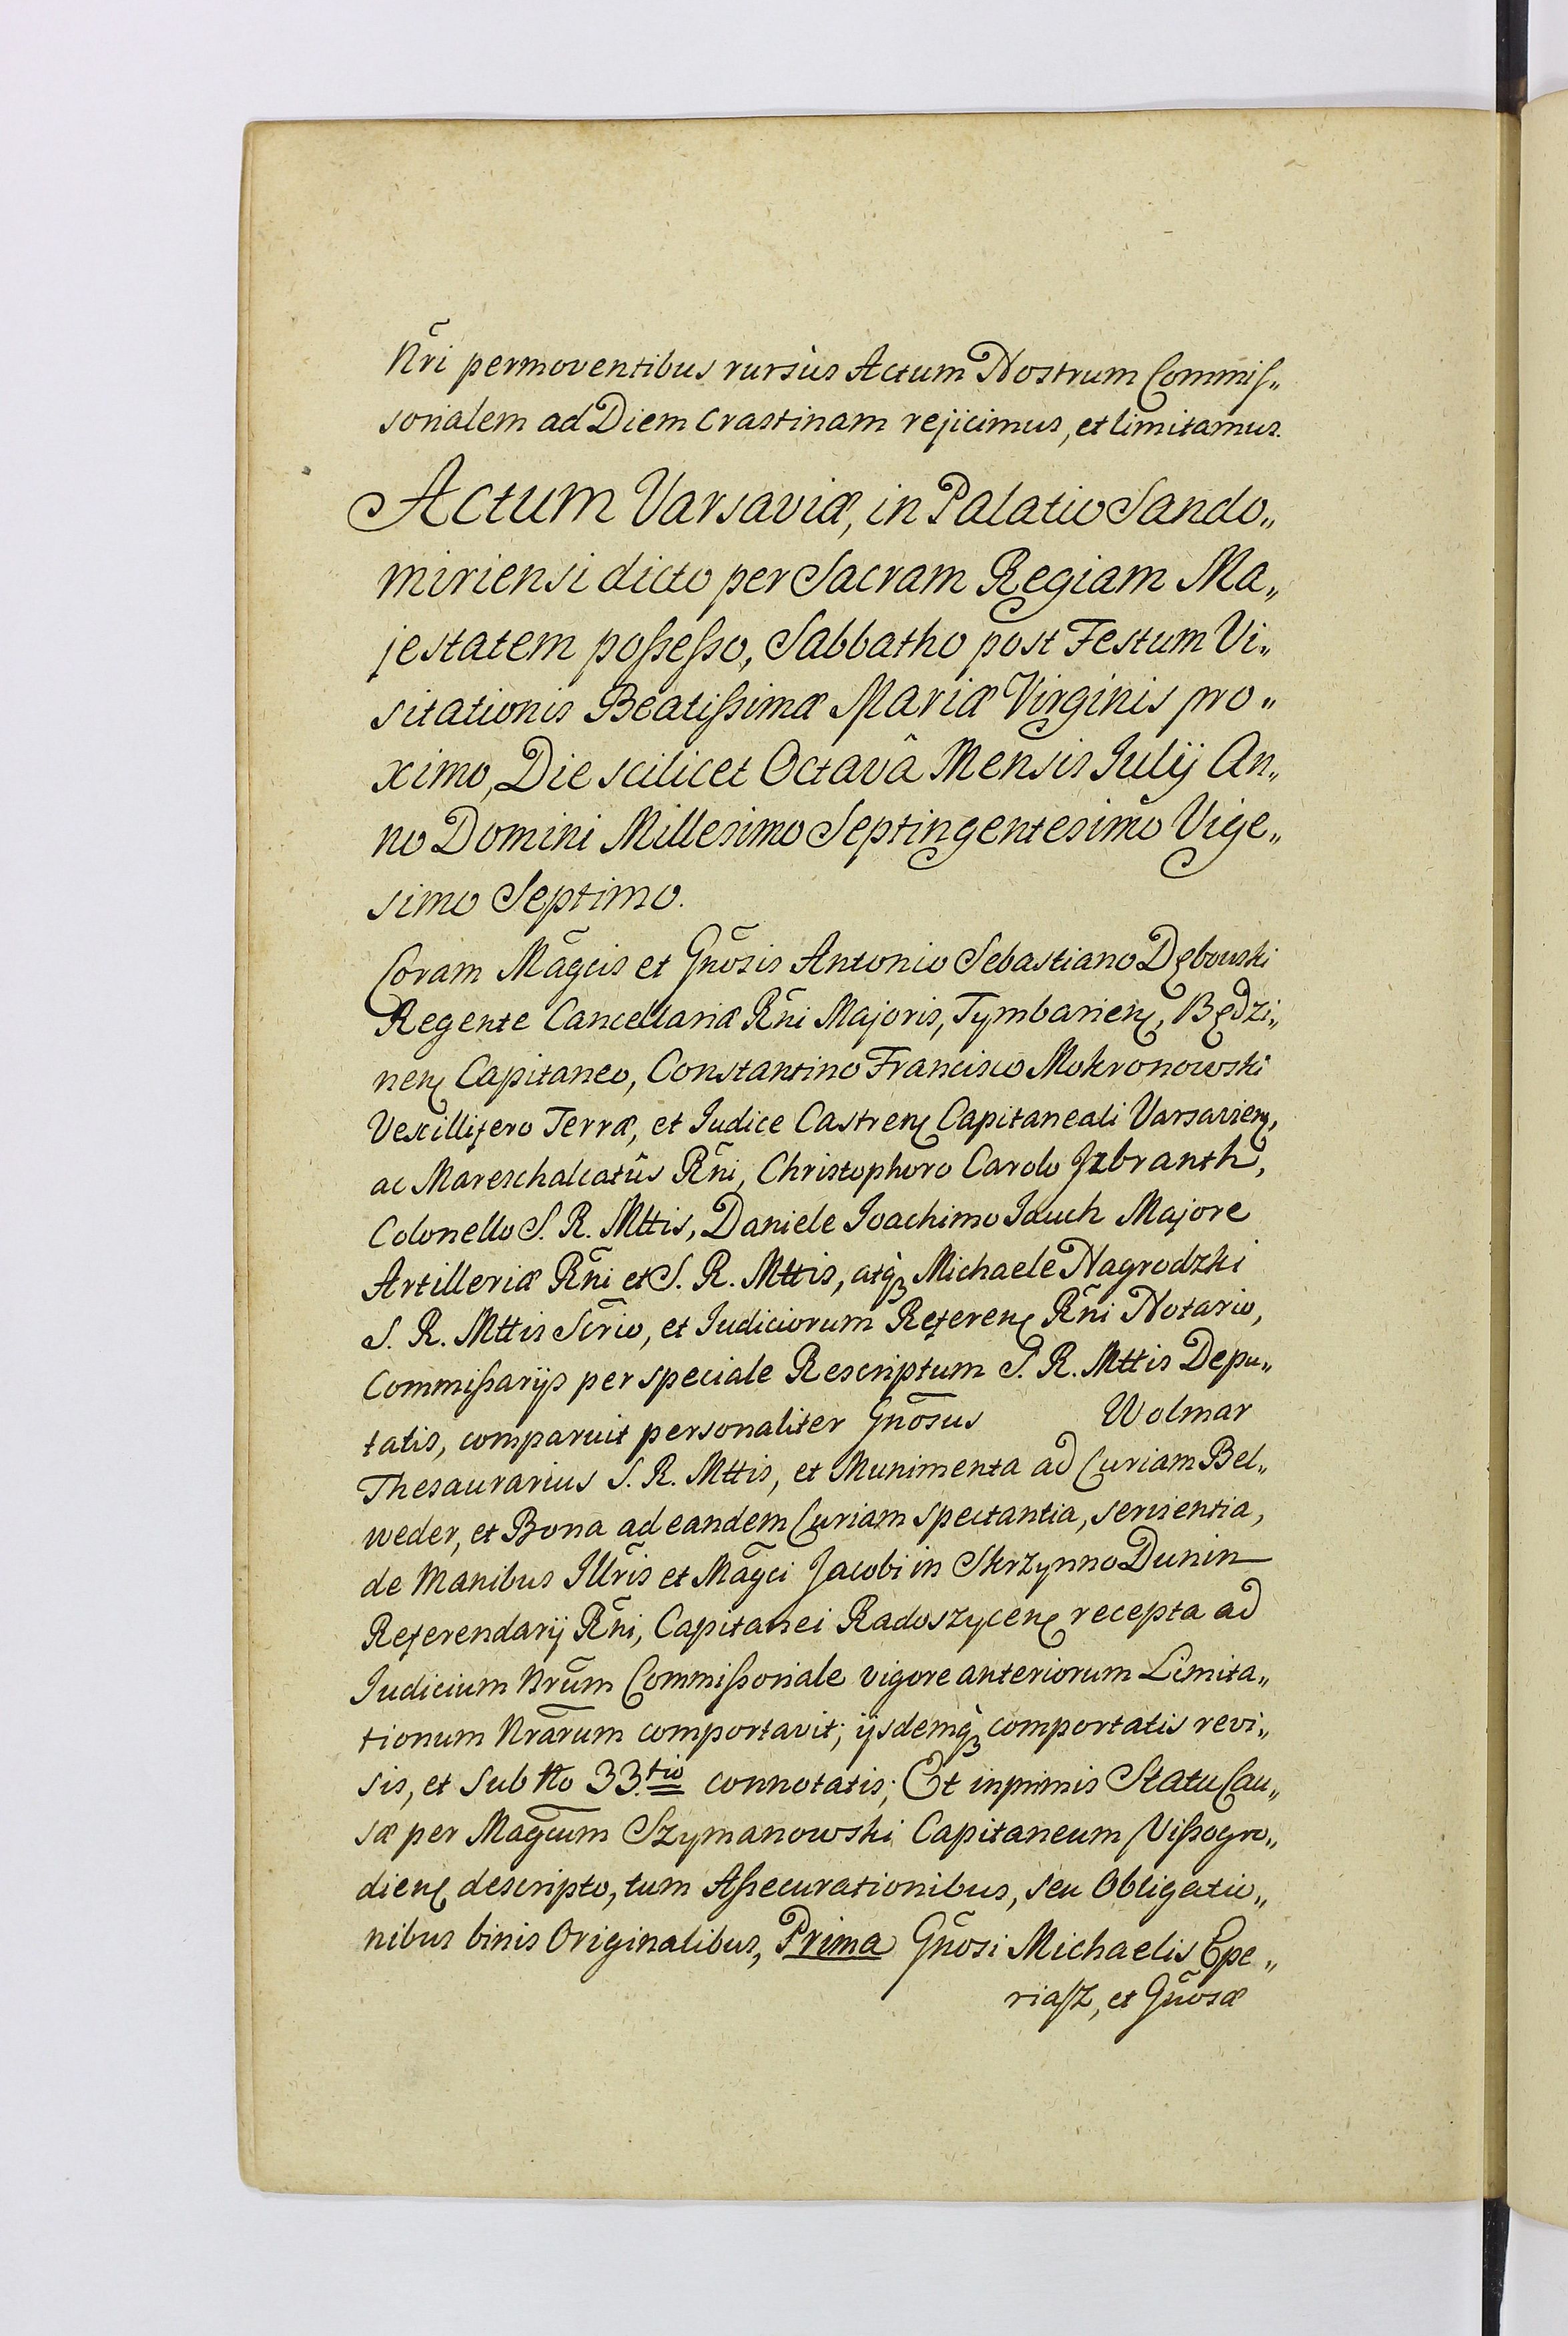 Nr̃i permoventibus rursùs Actum Nostrum Commiſ„
sorialem ad Diem Crastinam rejicimus, et limitamus.
Actum Varsaviæ, in Palatio Sando„
miriensi dicto per Sacram Regiam Ma„
jestatem poſseſso, Sabbatho post Festum Vi„
sitationis Beatiſsimæ Mariæ Virginis pro„
ximo, Die scilicet Octavâ Mensis Julij An„
no Domini Millesimo Septingentesimo Vige„
simo Septimo.
Coram Mag̃cis et Gñosis Antonio Sebastiano Dębowski
Regente Cancellariæ Rñi Majoris, Tymbarienȝ, Będzi„
nenȝ Capitaneo, Constantino Francisco Mokronowski
Vexillifero Terræ, et Judice Castrenȝ Capitaneali Varsavienȝ,
ac Mareschalcatûs Rñi, Christophoro Carolo Jzbranth,
Colonello S. R. Mttis, Daniele Joachimo Jauch Majore
Artilleriæ Rñi et S. R. Mttis, atq̀ȝ Michaele Nagrodzki
S. R. Mttis Scr̃io, et Judiciorum Referenȝ Rñi Notario,
Commiſsarijs per speciale Rescriptum S. R. Mttis Depu„
tatis, comparuit personaliter Gñosus Wolmar
Thesaurarius S. R. Mttis, et Munimenta ad Curiam Bel„
weder, et Bona ad eandem Curiam spectantia, servientia,
de Manibus Jllr̃is et Mag̃ci Jacobi in Skrzynno Dunin
Referendarij Rñi, Capitanei Radoszycenȝ recepta ad
Judicium Nr̃um Commiſsoriale vigore anteriorum Limita„
tionum Nr̃arum comportavit; ijsdemq̀ȝ comportatis revi„
sis, et Sub No 33.tio connotatis; Et inprimis Statu Cau„
sæ per Mag̃cum Szymanowski Capitaneum Viſsogro„
dienȝ descripto, tum Aſsecurationibus, seu Obligatio„
nibus binis Originalibus, Prima Gñosi Michaelis Epe„
riaſz, et Gñosæ